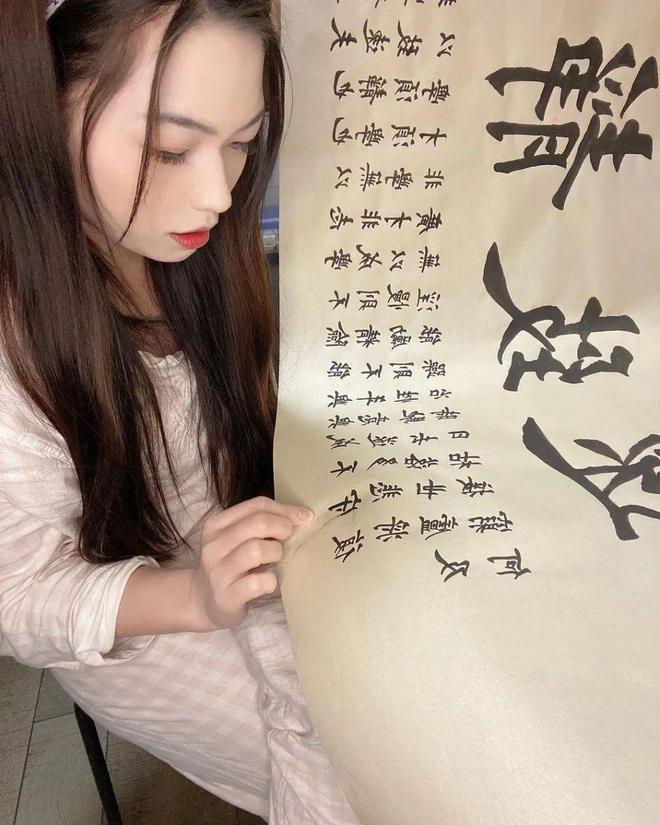 以致遠夫
學須靜也
才須學也
非學無以
廣才非志
無以成學
淫慢則不
能勵精險
躁則不能
治性年與
時馳意與
日去遂成
枯落多不
接世悲守
窮廬將復
何及